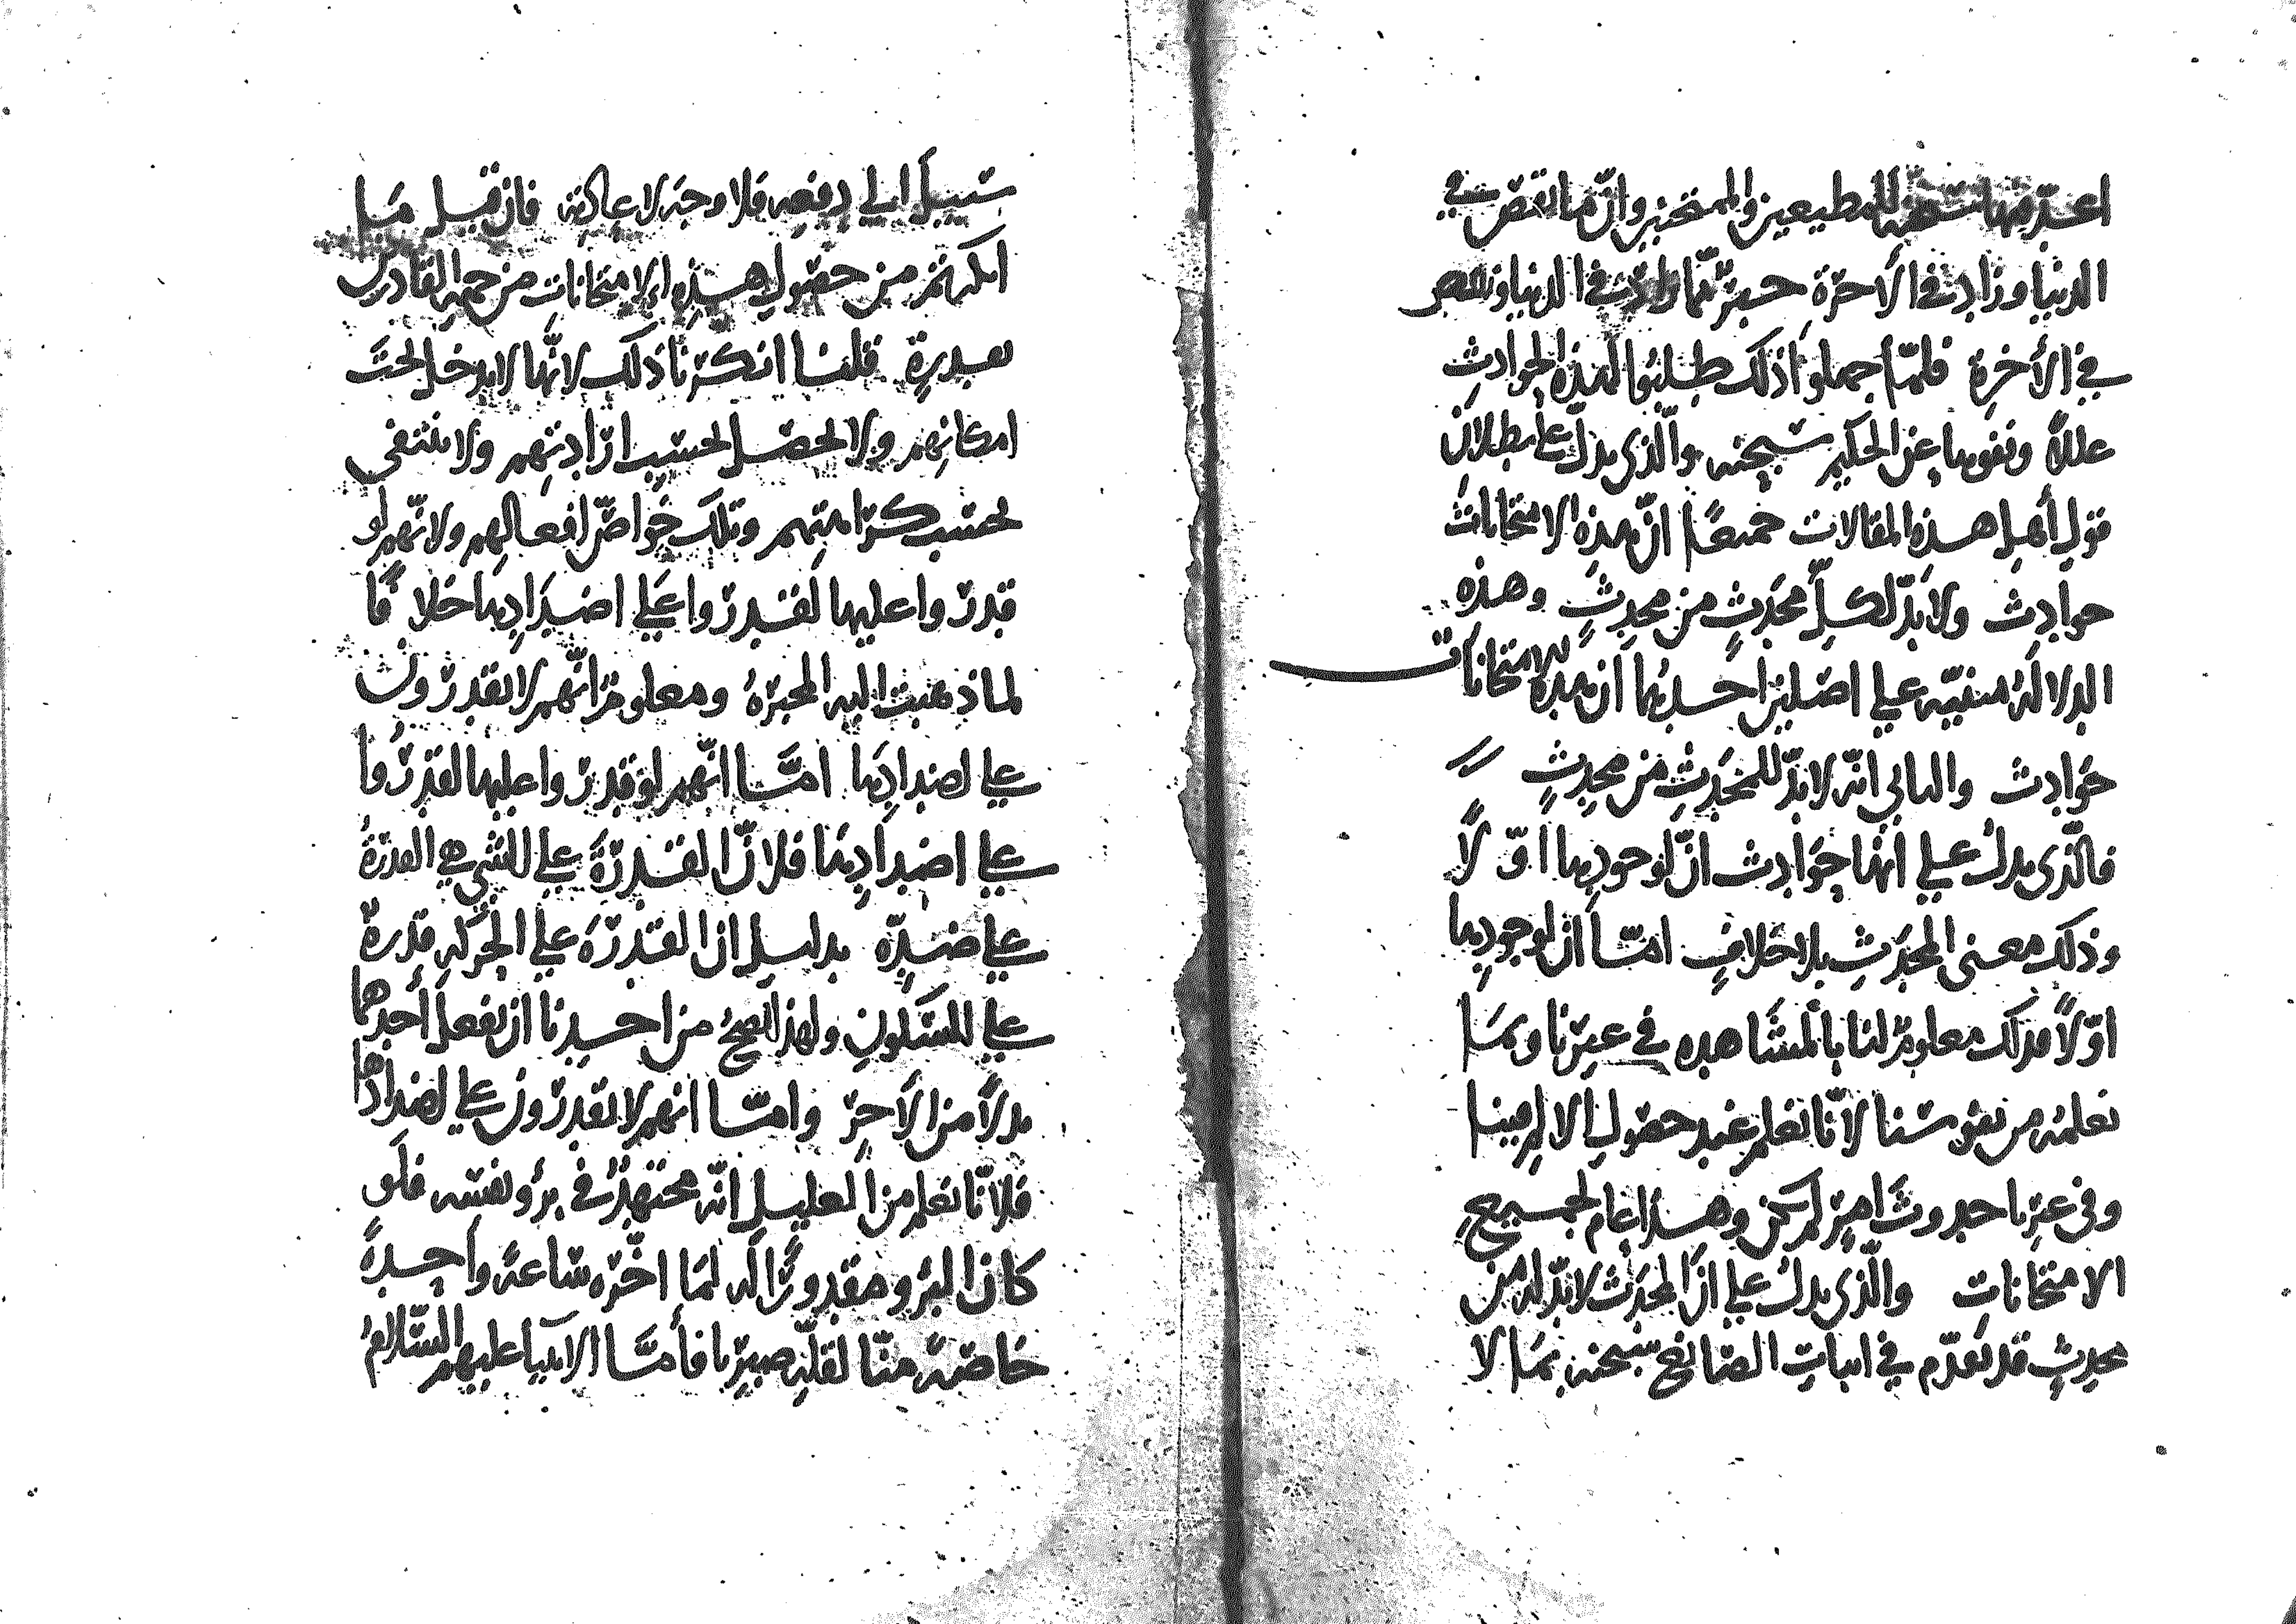 اعدّ منها سبحنه للمطيعين والممتحنين وانّ ما نقص في
الدنيا وزاد في الآخرة خير ممّا زاد في الدنيا ونقص
في الآخرة فلمّا جهلوا ذلك طلبوا لهذه الحوادث
عللاً ونفوها عن الحكيم سبحنه والّذي يدلّ على بطلان
قول أهل هذه المقالات جميعًا انّ هذه الامتحانات
حوادث ولا بدّ لكلّ محدَثٍ من محدِثٍ وهذه
الدلالة مبنيّه على اصلين احدهما ان هذه الامتحانات
حوادث والثاني انّه لا بدّ للمحدَثِ من محدِثٍ
فالّذي يدل على انّها حوادث انّ لوجودها اوّلاً
وذلك معنى المحدَثِ بلا خلافٍ امّا ان لوجودها
اوّلاً فذلك معلوم لنا بالمشاهده في غيرنا وبما
نعلمه من نفوسنا لأنّا نعلم عند حصول الالم فينا
وفي غيرنا حدوث امر لم يكن وهذا عام لجميع
الامتحانات والّذي يدل على ان المحدَث لا بدّ له من
محدِثٍ قد تقدّم في اثبات الصانع سبحنه بما لا
سبيل الى دفعه فلا وجه لاعادته فان قيل ما
انكرتم من حصول هذه الامتحانات من جهة القادرين
بعدرة قلنا انكرنا ذلك لانّها لا تدخل تحت
امكانهم ولا تحصل بحسب ارادتهم ولا تنتفي
بحسب كراهتهم وتلك خواصّ افعالهم ولانّهم لو
قدروا عليها لقدروا على اضدادها خلافًا
لما ذهبت اليه المجبرة ومعلوم انّهم لا يقدرون
على اضدادها امّا انّهم لو قدروا عليها لقدروا
على اضدادها فلانّ القدرة على الشي هي القدرة
على ضدّه بدليل ان القدرة على الحركه قدرة
على السكون ولهذا يصح من احدنا ان يفعل أحدهما
بدلاً من الآخر وامّا انهم لا يقدرون على اضدادها
فلانّا نعلم من العليل انّه مجتهد في برؤ نفسه فلو
كان البرؤ مقدورًا له لما اخّره ساعة واحدة
خاصّه منّا لقلّة صبرنا فأمّا الانبيا عليهم السّلام